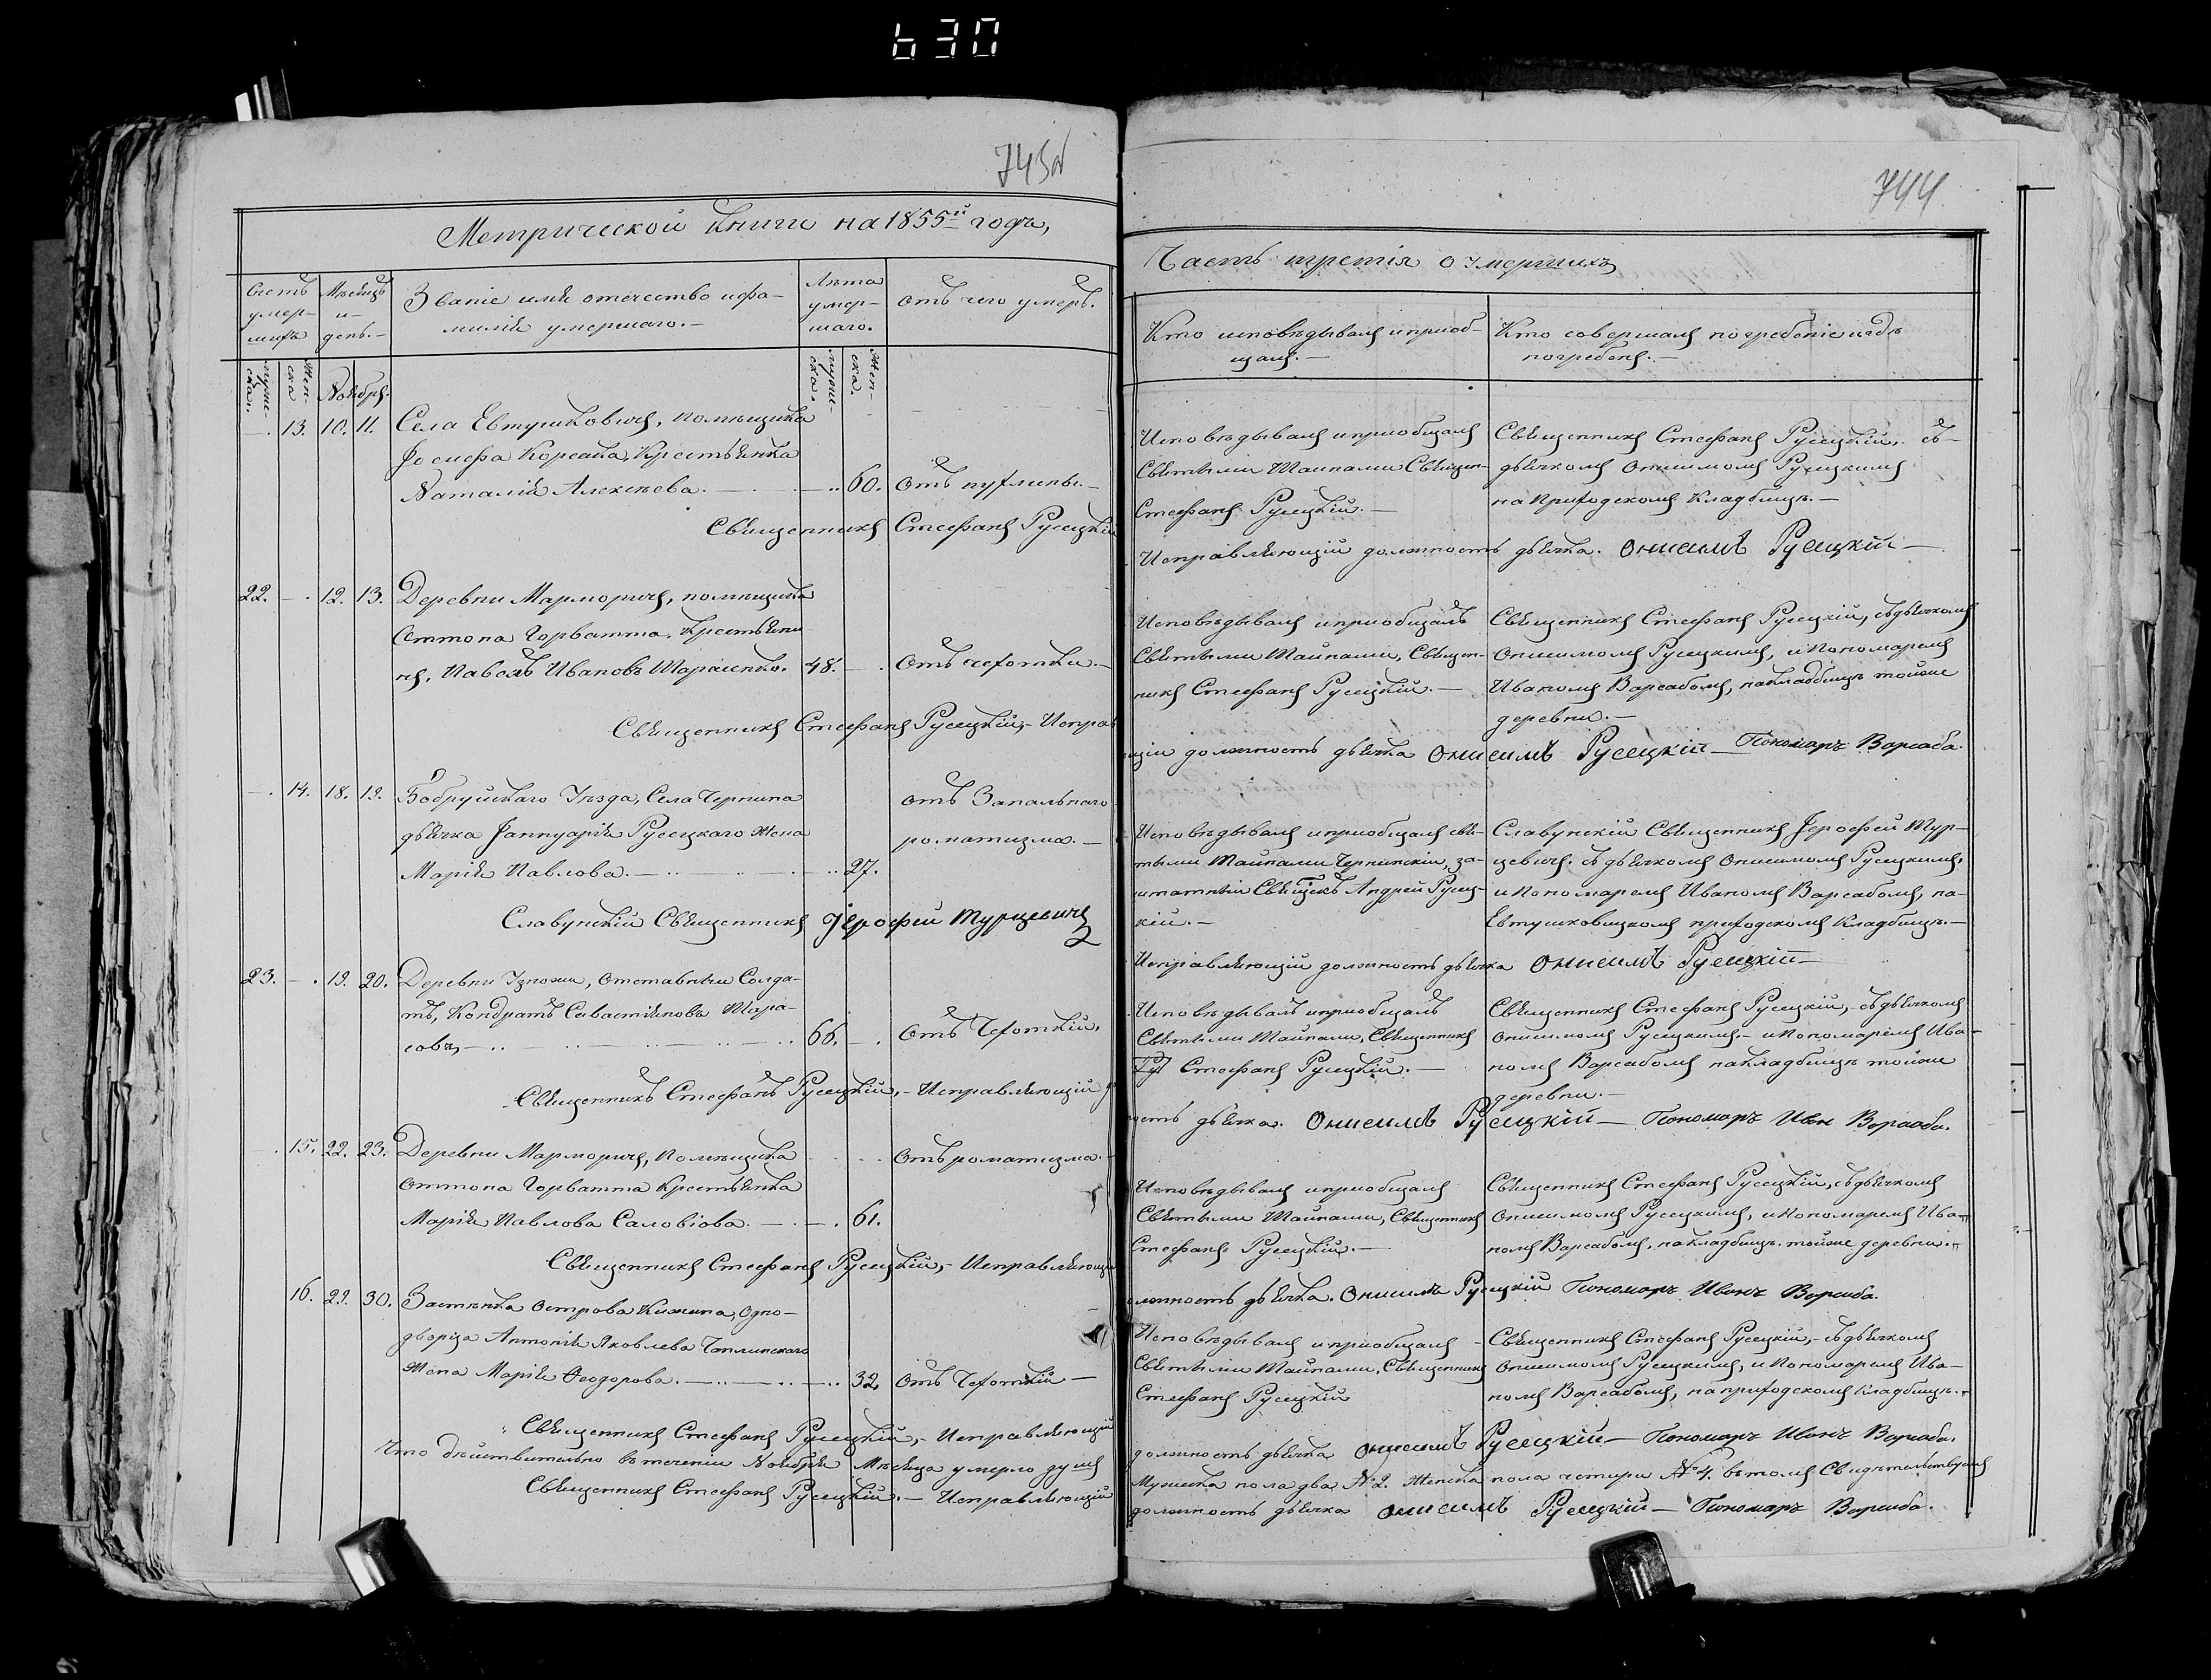 630
743об
Метрической Книги на 1855й годъ,
Счетъ умер-шихъ
Мѣсяцъ и день.-
Званіе имя отечество и фа-
милія умершаго.-
Лѣта умер-шаго.
Отъ чего умеръ.
мужеска.
женска
Ноября.
мужеска.
женска.
13. 10. 11. Села Евтушковичъ, помѣщика
Іосифа Корсака, Крестьянка
Наталія Алексѣева. 60. Отъ пухлины.-
Священникъ Стефанъ Русецкій
22. 12. 13. Деревни Марморичъ, помѣщика
Оттона Горватта, Крестьяни
нъ, Павелъ Ивановъ Тарасенко. 48. Отъ чехотки.-
Священникъ Стефанъ Русецкій,- Исправ
14. 18. 19. Бобруйскаго Уѣзда, Села Чернина
отъ Запальнаго
дьячка Іаннуарія Русецкаго жена
роматизма.-
Марія Павлова. 27.
Славунскій Священникъ Іерофей Турцевичъ
23. 19. 20. Деревни Узножи, Отставный Солда-
тъ, Кондратъ Севастіяновъ Тара-
совъ, 66. Отъ Чехоткій.
Священникъ Стефанъ Русецкій,- Исправляющій
15. 22. 23. Деревни Марморичъ, Помѣщика Отъ роматизма.-
Оттона Горватта Крестьянка
Марія Павлова Саловіова. 61.
Священникъ Стефанъ Русецкій,- Исправляющій
16. 29. 30. Застѣнка Острова Кижина, Одно-
дворца Антонія Яковлева Чаплинскаго
жена Марія Феодорова. 32. Отъ Чехоткій -
Священникъ Стефанъ Русецкій,- Исправляющій
Что дѣйствительно въ теченіи Ноября Мѣсяца умерло душъ
Священникъ Стефанъ Русецкій.- Исправляющій
744
Часть третія о умершихъ
Кто исповѣдывалъ и пріоб-
щалъ.-
Кто совершалъ погребеніе и гдѣ
погребенъ.-
Исповѣдывалъ и приобщалъ
Святыми Тайнами Священ-
Стефанъ Русецкій.-
Священникъ Стефанъ Русецкій, съ-
дьячкомъ Онисимомъ Русецкимъ
на Приходскомъ Кладбищѣ.-
Исправляющій должность дьячка. Онисимъ Русецкій-
Исповѣдывалъ и приобщалъ
Святыми Тайнами, Священ-
никъ Стефанъ Русецкій.-
Священникъ Стефанъ Русецкій, съ дьячкомъ
Онисимомъ Русецкимъ, и Пономаремъ
Иваномъ Варсабомъ, на кладбищѣ тойже
деревни.-
щій должность дьячка Онисимъ Русецкій- Пономаръ Варсаба.
Исповѣдывалъ и приобщалъ свя-
тыми Тайнами Чернинскій, за-
штатный Свящикъ Андрей Русец-
кій.-
Славунскій Священникъ Іерофей Тур-
цевичъ. съ дьячкомъ Онисимомъ Русецкимъ,
и Пономаремъ Иваномъ Варсабомъ, на-
Евтушковицкомъ приходскомъ Кладбищѣ.-
Исправляющій должность дьячка Онисимъ Русецкій-
Исповѣдывалъ и приобщалъ
Святыми Тайнами, Священникъ
Стефанъ Русецкій.-
Священникъ Стефанъ Русецкій, съ дьячкомъ
Онисимомъ Русецкимъ,- и Пономаремъ Ива-
номъ Варсабомъ на кладбищѣ тойже
деревни.-
ность дьячка. Онисимъ Русецкій- Пономаръ Иван Варсаба.
Исповѣдывалъ и приобщалъ
Святыми Тайнами, Священникъ
Стефанъ Русецкій.-
Священникъ Стефанъ Русецкій, съ дьячкомъ
Онисимомъ Русецкимъ, и Пономаремъ Ива-
номъ Варсабомъ, на кладбищѣ тойже деревни.
лжность дьячка. Онисимъ Русецкій Пономаръ Иванъ Варсаба.
Исповѣдывалъ и приобщалъ
Святыми Тайнами, Священникъ
Стефанъ Русецкій
Священникъ Стефанъ Русецкій,- съ дьячкомъ
Онисимомъ Русецкимъ, и Пономаремъ Ива-
номъ Варсабомъ, на приходскомъ Кладбищѣ.
должность дьячка Онисимъ Русецкій- Пономаръ Иванъ Варсаба.
Мужеска пола два №2. Женска пола четыри №4. въ томъ Свидѣтельствуемъ
должность дьячка Онисимъ Русецкій- Пономаръ Варсаба.